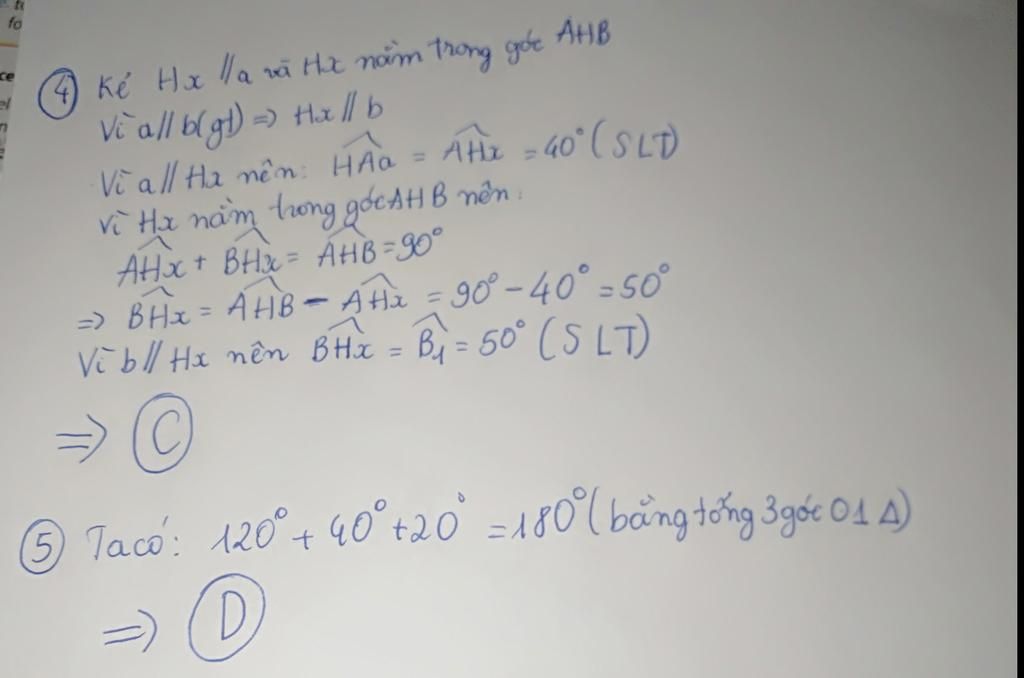 ④ Kẻ Hx // a và Hx nằm trong góc AHB
Vì a // b (gt) => Hx // b
Vì a // Hx nên: HAa = AHx = 40° (SLT)
Vì Hx nằm trong góc AHB nên:
AHx + BHx = AHB = 90°
=> BHx = AHB - AHx = 90° - 40° = 50°
Vì b // Hx nên BHx = B₁ = 50° (SLT)
=> Ⓒ
⑤ Ta có: 120° + 40° + 20° = 180° (bằng tổng 3 góc 01 Δ)
=> Ⓓ